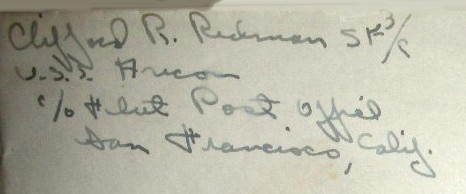 Clifford R. Redman SK 3/c
U.S.S.
c/o Fleet Post Office
San Francisco, Calif.